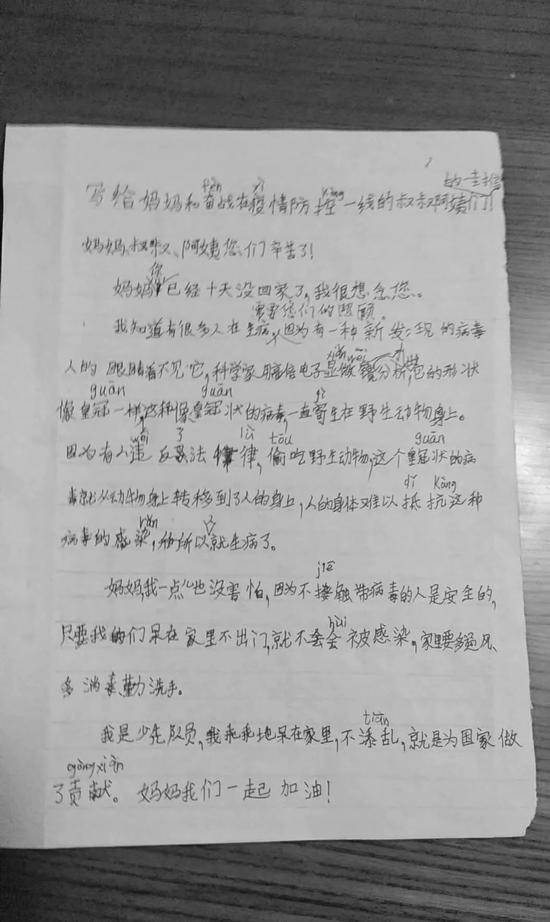 的一封信
fèn yì kòng
写给妈妈和奋战在疫情防控一线的叔叔阿姨们!
妈妈、叔叔、阿姨您们辛苦了!
妈妈您已经十天没回家了,我很想念您。
需要您们的照顾。
我知道有很多人在生病,因为有一种新发现的病毒
人的眼睛看不见它,科学家用高倍电子显微镜分析它的形状
guān guān jì
像皇冠一样,这种像皇冠状的病毒,一直寄生在野生动物身上。
wéi lǜ tōu guān
因为有人违反法律,偷吃野生动物,这个皇冠状的病
dǐ kàng
毒就从动物身上转移到了人的身上,人的身体难以抵抗这种
rǎn
病毒的感染,所以就生病了。
jiē
妈妈,我一点儿也没害怕,因为不接触带病毒的人是安全的,
huì
只要我们呆在家里不出门,就不会被感染,家里要多通风、
多消毒勤洗手。
tiān
我是少先队员,我乖乖地呆在家里,不添乱,就是为国家做
gòng xiàn
了贡献。妈妈我们一起加油!